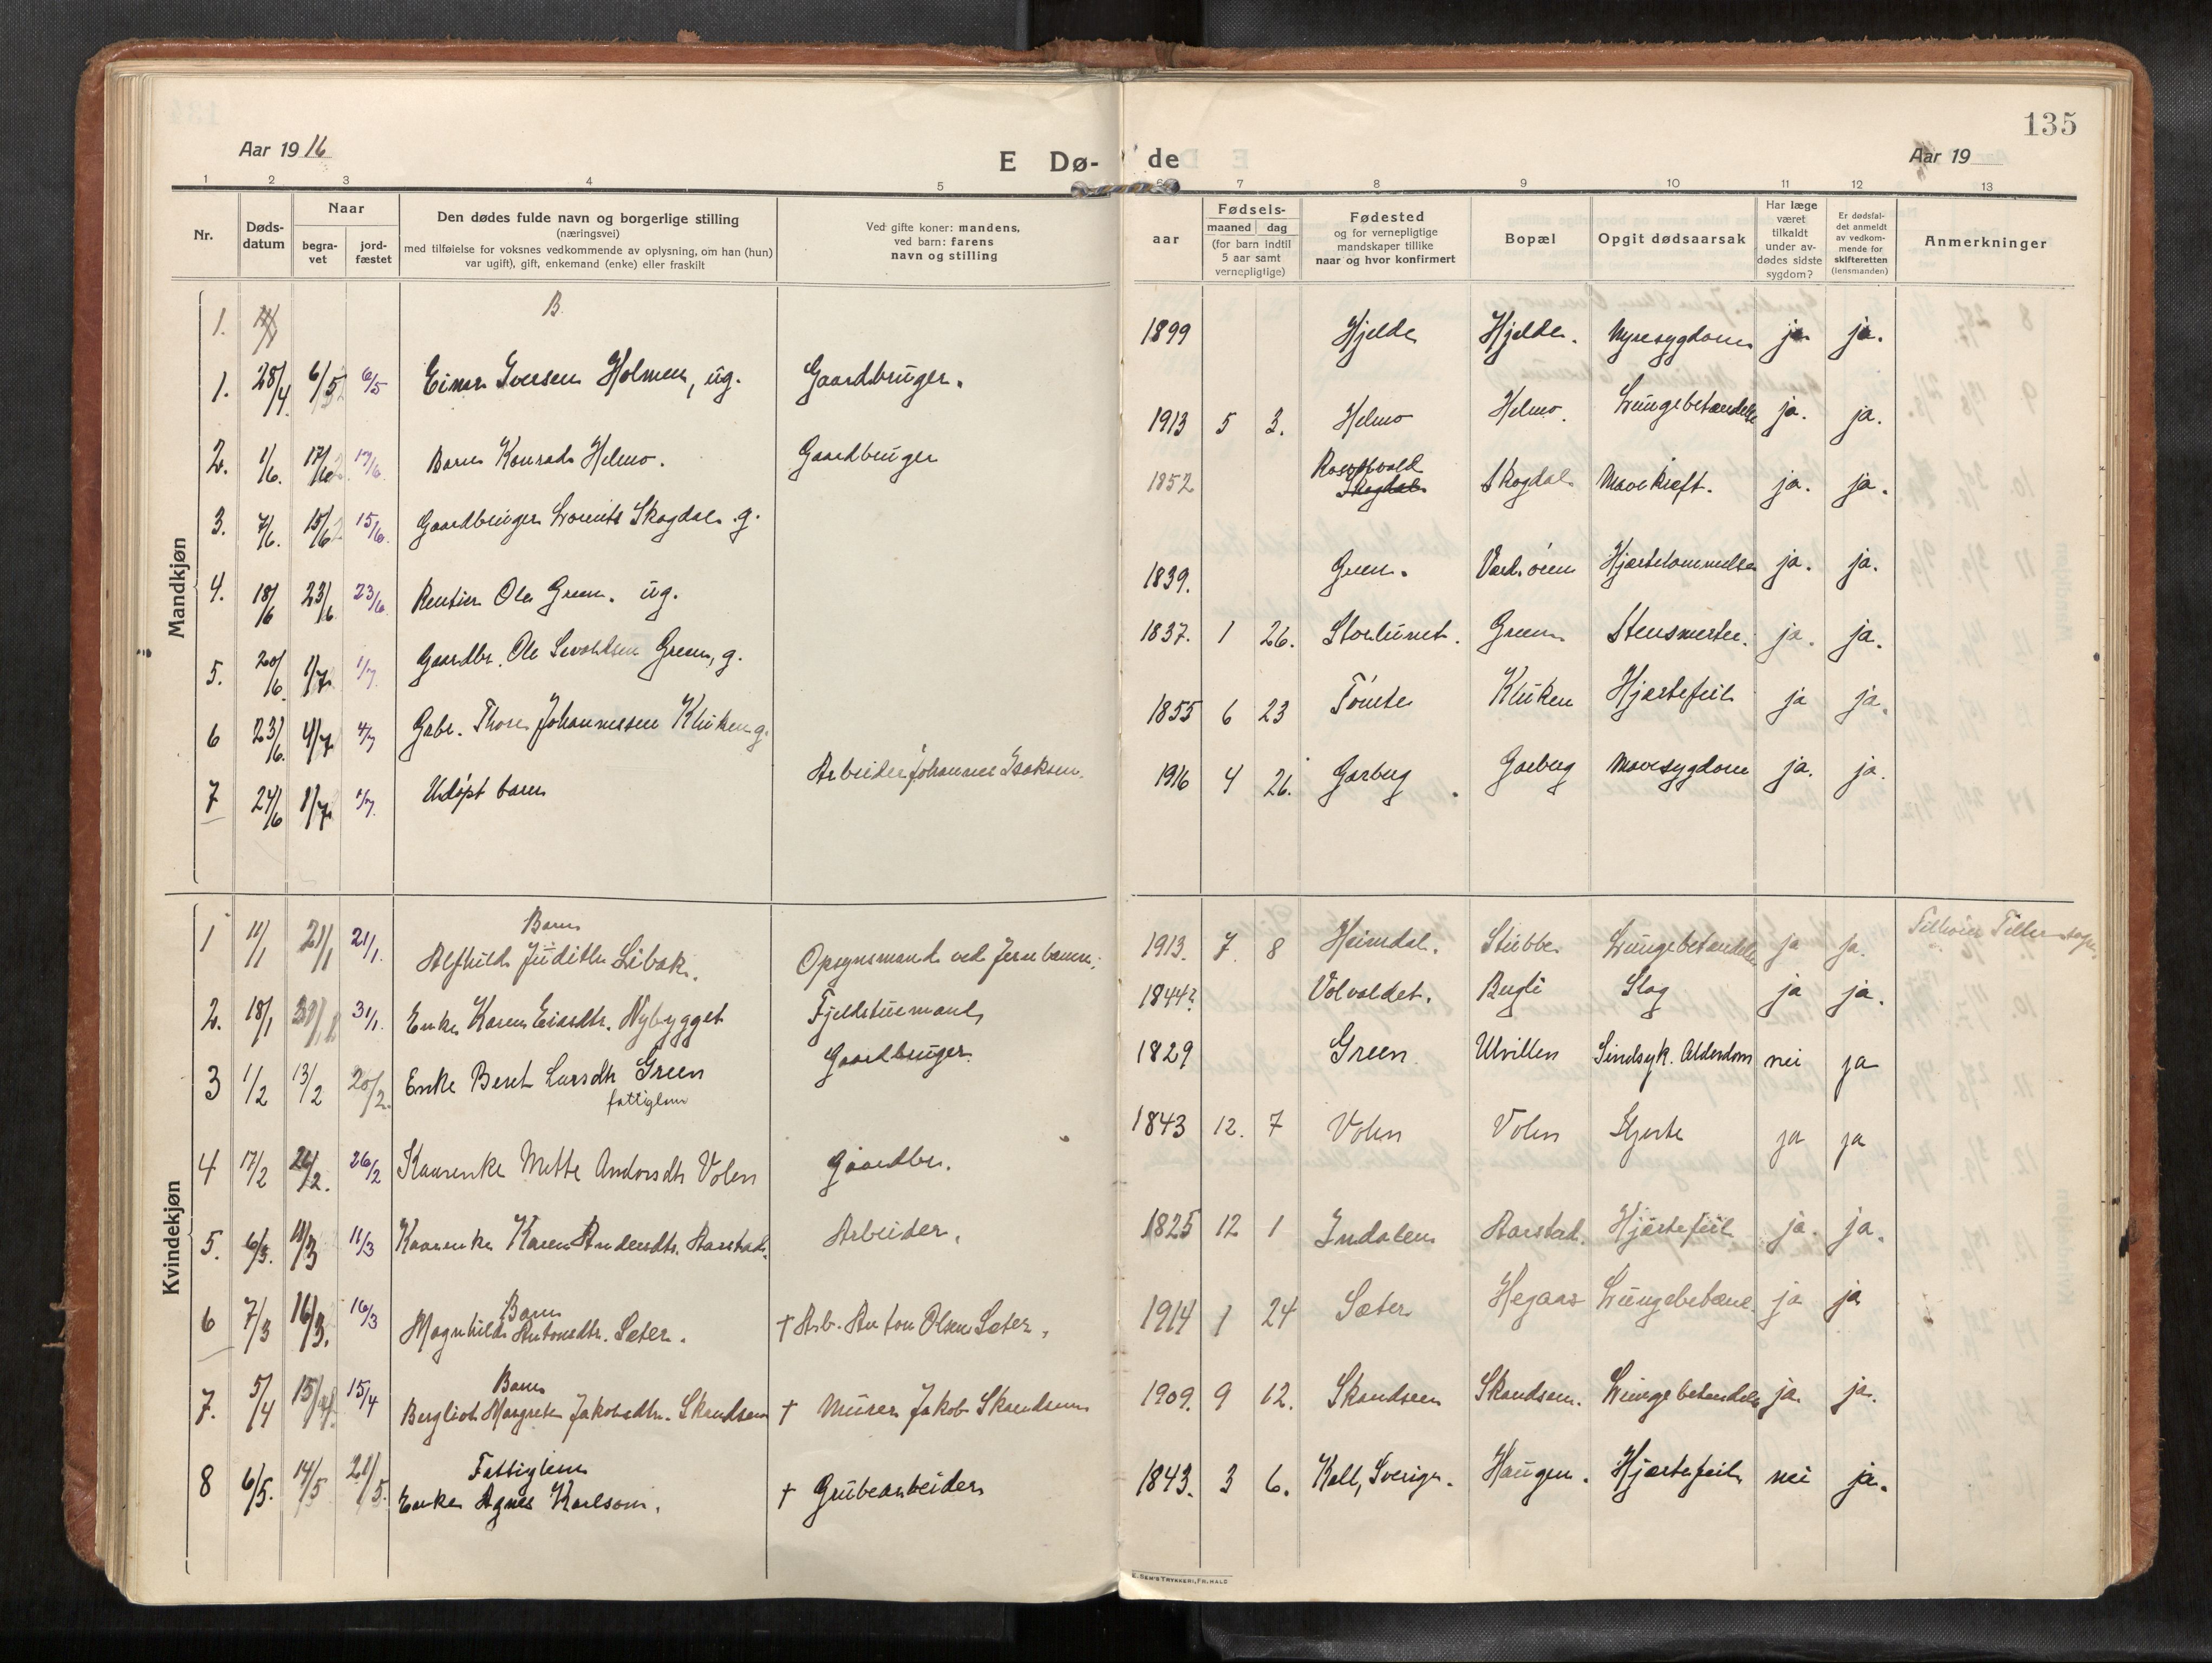 135
Aar 1916
E Dø- de
Aar 19
1 2 3 4 5 6 7 8 9 10 11 12 13
Nr.
Døds-
datum
Naar
begra-
vet
jord-
fæstet
Den dødes fulde navn og borgerlige stilling
(næringsvei)
med tilføielse for voksnes vedkommende av oplysning, om han (hun)
var ugift), gift, enkemand (enke) eller fraskilt
Ved gifte koner: mandens,
ved barn: farens
navn og stilling
aar
Fødsels-
maaned dag
(for barn indtil
5 aar samt
vernepligtige)
Fødested
og for vernepligtige
mandskaper tillike
naar og hvor konfirmert
Bopæl
Opgit dødsaarsak
Har læge
været
tilkaldt
under av-
dødes sidste
sygdom?
Er dødsfal-
det anmeldt
av vedkom-
mende for
skifteretten
(lensmanden)
Anmerkninger
Mandkjøn
1. B.
1. 28/4. 6/5 6/5 Einar Iversen Holmen, ug. Gaardbruger. 1899 Hjelde Hjelde. Nyresygdom ja ja.
2. 1/6. 17/6 17/6. Barn Konrad Helmo. Gaardbruger 1913 5 3. Helmo Helmo. Lungebetændelse ja. ja.
3. 7/6. 15/6 15/6. Gaardbruger Lorents Skogdal. g. 1852 Skogdal Skogdal Mavekræft. ja. ja.
4. 18/6 23/6 23/6. Rentier Ole Green. ug. 1839. Green. Hjertelammelse ja. ja.
5. 20/6. 1/7. 1/7. Gaardbr. Ole Sivertsen Green, g. 1837. 1 26. Storlunet. Green Stensmerter. ja. ja.
6 23/6. 4/7 4/7 Gabr. Thore Johannessen Kluken g. 1855 6 23 Tomte Kluken Hjertefeil ja ja.
7 24/6 1/7. 1/7. Udøpt barn Arbeider Johannes Isaksen. 1916 4 26. Garberg Garberg Mavesygdom ja. ja.
Kvindekjøn
1 11/1 21/1 21/1. Barn
Alfhild Judith Libak. Opsynsmand ved Jernbanen. 1913. 7. 8 Heimdal. Stubbe Lungebetændelse ja ja. Tiller sogn
2. 18/1 31/1. Enke Karen Eriksdtr. Nybygget Fjeldstuemand 1844? Volvoldet. Slag ja ja.
3 1/2 13/2 20/2. Enke Beret Larsdtr Green
fattiglem Gaardbruger. 1829 Green. Ulvillen Sindsyk. Alderdom nei ja
4 17/2 26/2. 26/2 Kaarenke Mette Andorsdtr Volen Gaardbr. 1843 12. 7 Volen Volen Hjerte ja ja
5. 6/3. 11/3 11/3 Kaarenke Karen Andersdtr. Aarstad. Arbeider. 1825 12 1 Indalen Aarstad. Hjertefeil ja. ja.
6 7/3 16/3. 16/3 Barn
Magnhild Antonsdtr. Sæter. † Arb. Anton Olsen Sæter. 1914 1 24 Sæter Hegaas Lungebetænd. ja ja
7. 5/4 15/4. 15/4 Barn
Bergliot Margrete Jakobsdtr. Skandsen † Murer Jakob Skandsen 1909. 9 12. Skandsen Skandsen. Lungebetændelse ja. ja.
8 6/5. 14/5 21/5. Fattiglem
Enke Agnes Karlson. † Grubearbeider 1843. 3 6. Kall, Sverige. Haugen. Hjertefeil nei ja.
E. SEM'S TRYKKERI, FR.HALD